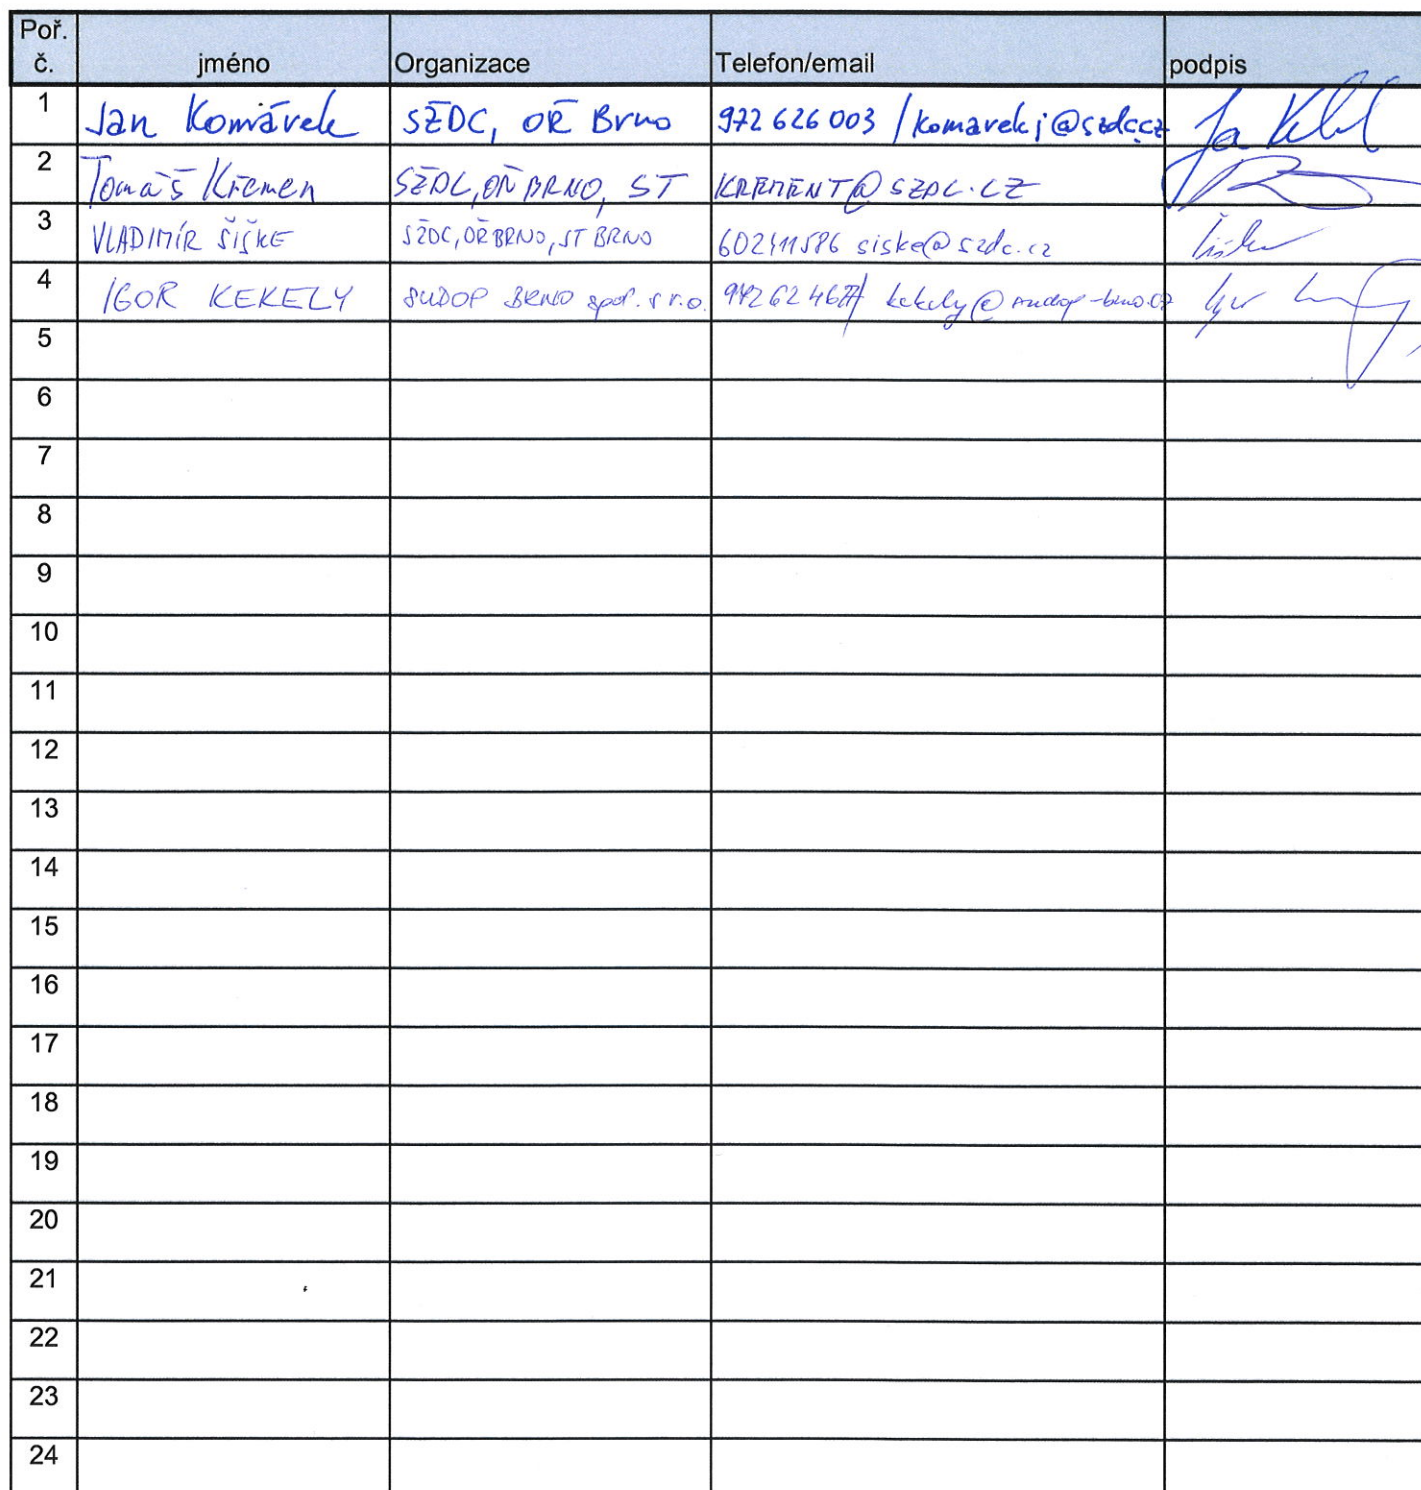 Poř. č. jméno Organizace Telefon/email podpis
1 Jan Komárek SŽDC, OŘ Brno 972 626 003 / komarekj@szdc.cz
2 Tomáš Křemen SŽDC, OŘ BRNO, ST KREMENT@SZDC.CZ
3 VLADIMÍR ŠIŠKE SŽDC, OŘ BRNO, ST BRNO siske@szdc.cz
4 IGOR KEKELY SUDOP BRNO spol. s r.o. kekely@sudop-brno.cz
5
6
7
8
9
10
11
12
13
14
15
16
17
18
19
20
21
22
23
24